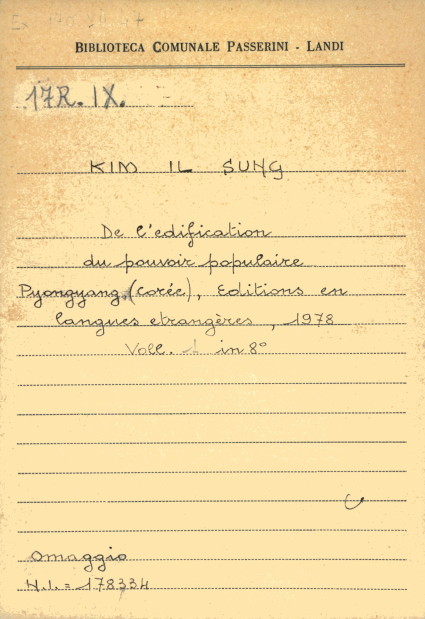 BIBLIOTECA COMUNALE PASSERINI - LANDI
17R. IX.
KIM IL SUNG
De l'edification
du pouvoir populaire
Pyongyang, (Corée), Editions en
langues etrangères, 1978
Voll. 1 in 8°
Omaggio
N.I. = 178334